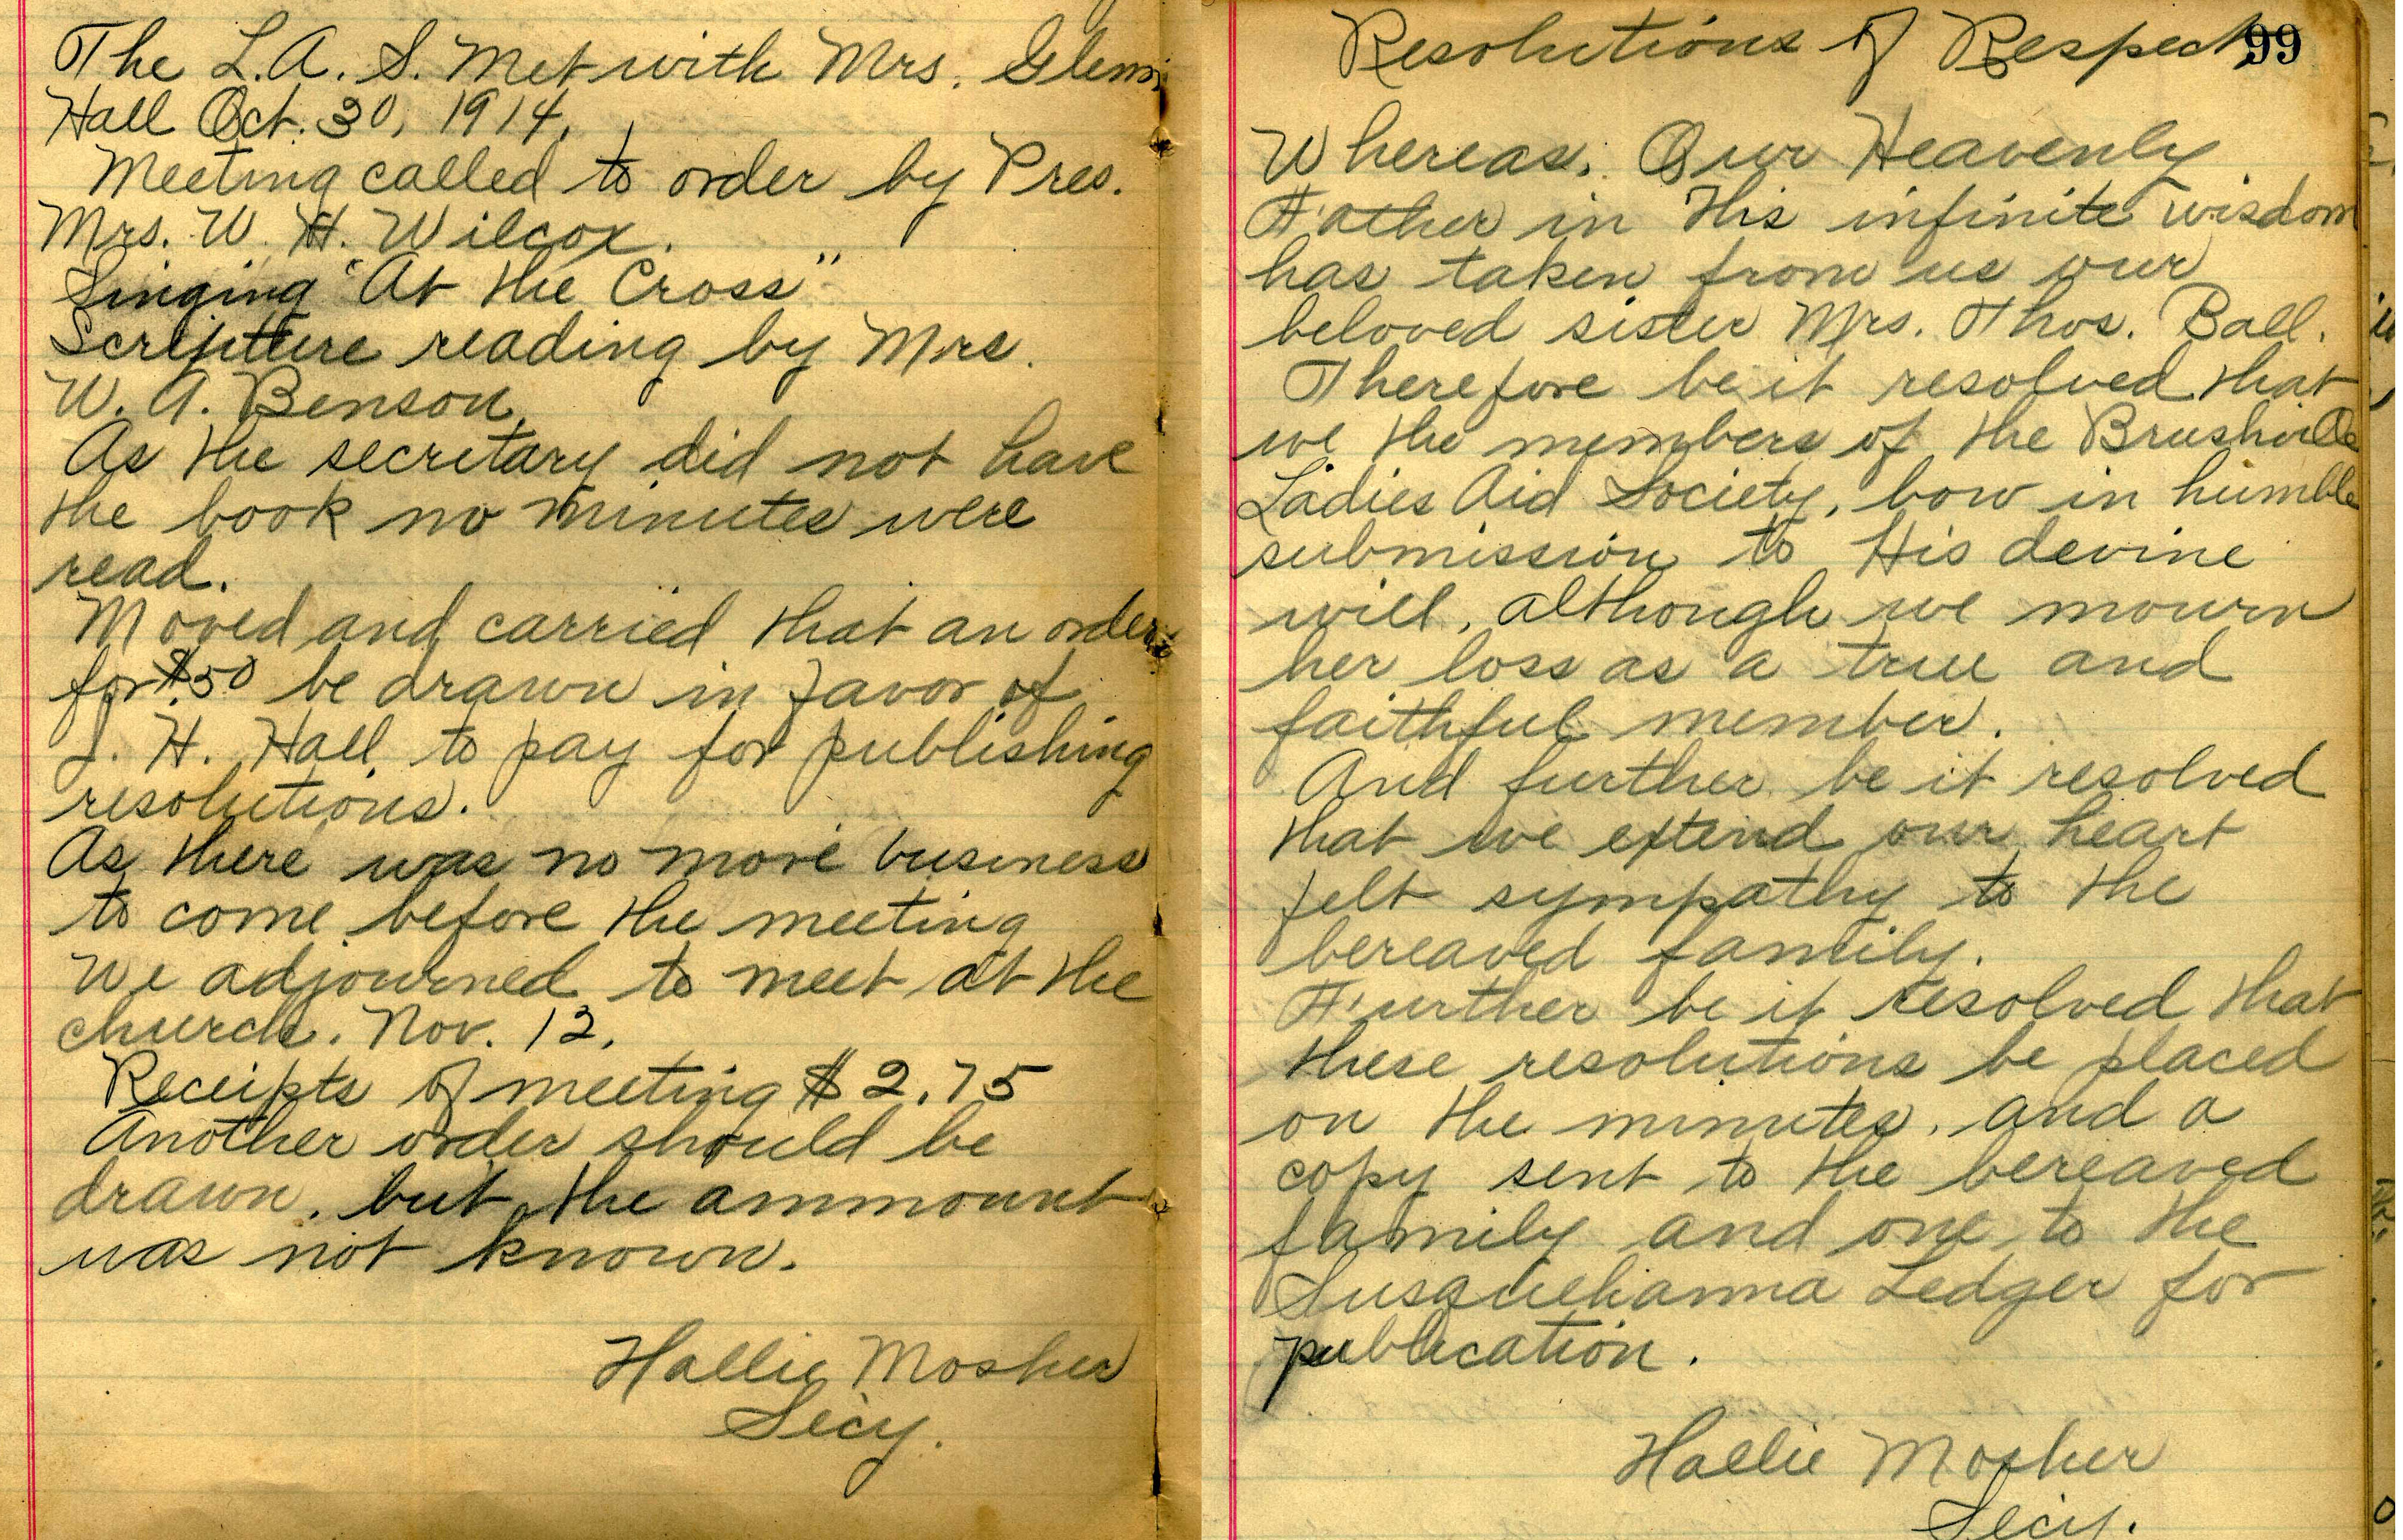 The L.A. S. Met with Mrs. Glenn
Hall Oct. 30, 1914.
Meeting called to order by Pres.
Mrs. W. H. Wilcox.
Singing "At the Cross"
Scripture reading by Mrs.
W. A. Benson.
As the secretary did not have
the book no minutes were
read.
Moved and carried that an order
for $.50 be drawn in favor of
J. H. Hall to pay for publishing
resolutions.
As there was no more business
to come before the meeting
We adjourned to meet at the
church. Nov. 12.
Receipts of meeting $2.75
Another order should be
drawn, but the ammount
was not known.
Hallie Mosher
Secy.
Resolutions of Respect
99
Whereas. Our Heavenly
Father in His infinite wisdom
has taken from us our
beloved sister Mrs. Thos. Ball.
Therefore be it resolved that
we the members of the Brushville
Ladies Aid Society, bow in humble
submission to His devine
will, although we mourn
her loss as a true and
faithful member.
And further be it resolved
that we extend our heart
felt sympathy to the
bereaved family.
Further be it resolved that
these resolutions be placed
on the minutes, and a
copy sent to the bereaved
family and one to the
Susquehanna Ledger for
publication.
Hallie Mosher
Secy.